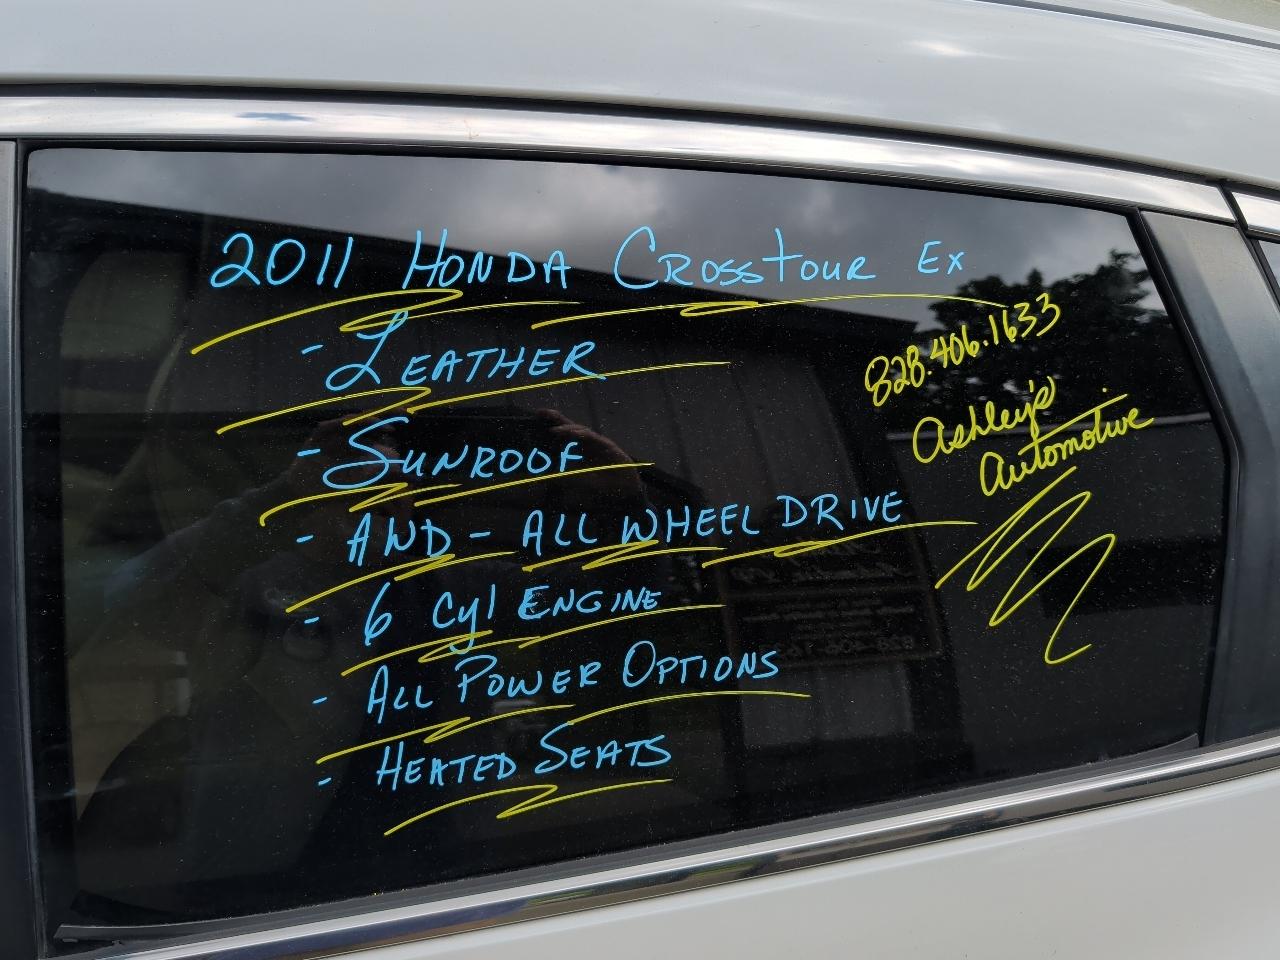 2011 HONDA CROSSTOUR EX
- LEATHER
- SUNROOF
- AWD - ALL WHEEL DRIVE
- 6 Cyl ENGINE
- ALL POWER OPTIONS
- HEATED SEATS
828.406.1633
Ashley's
Automotive